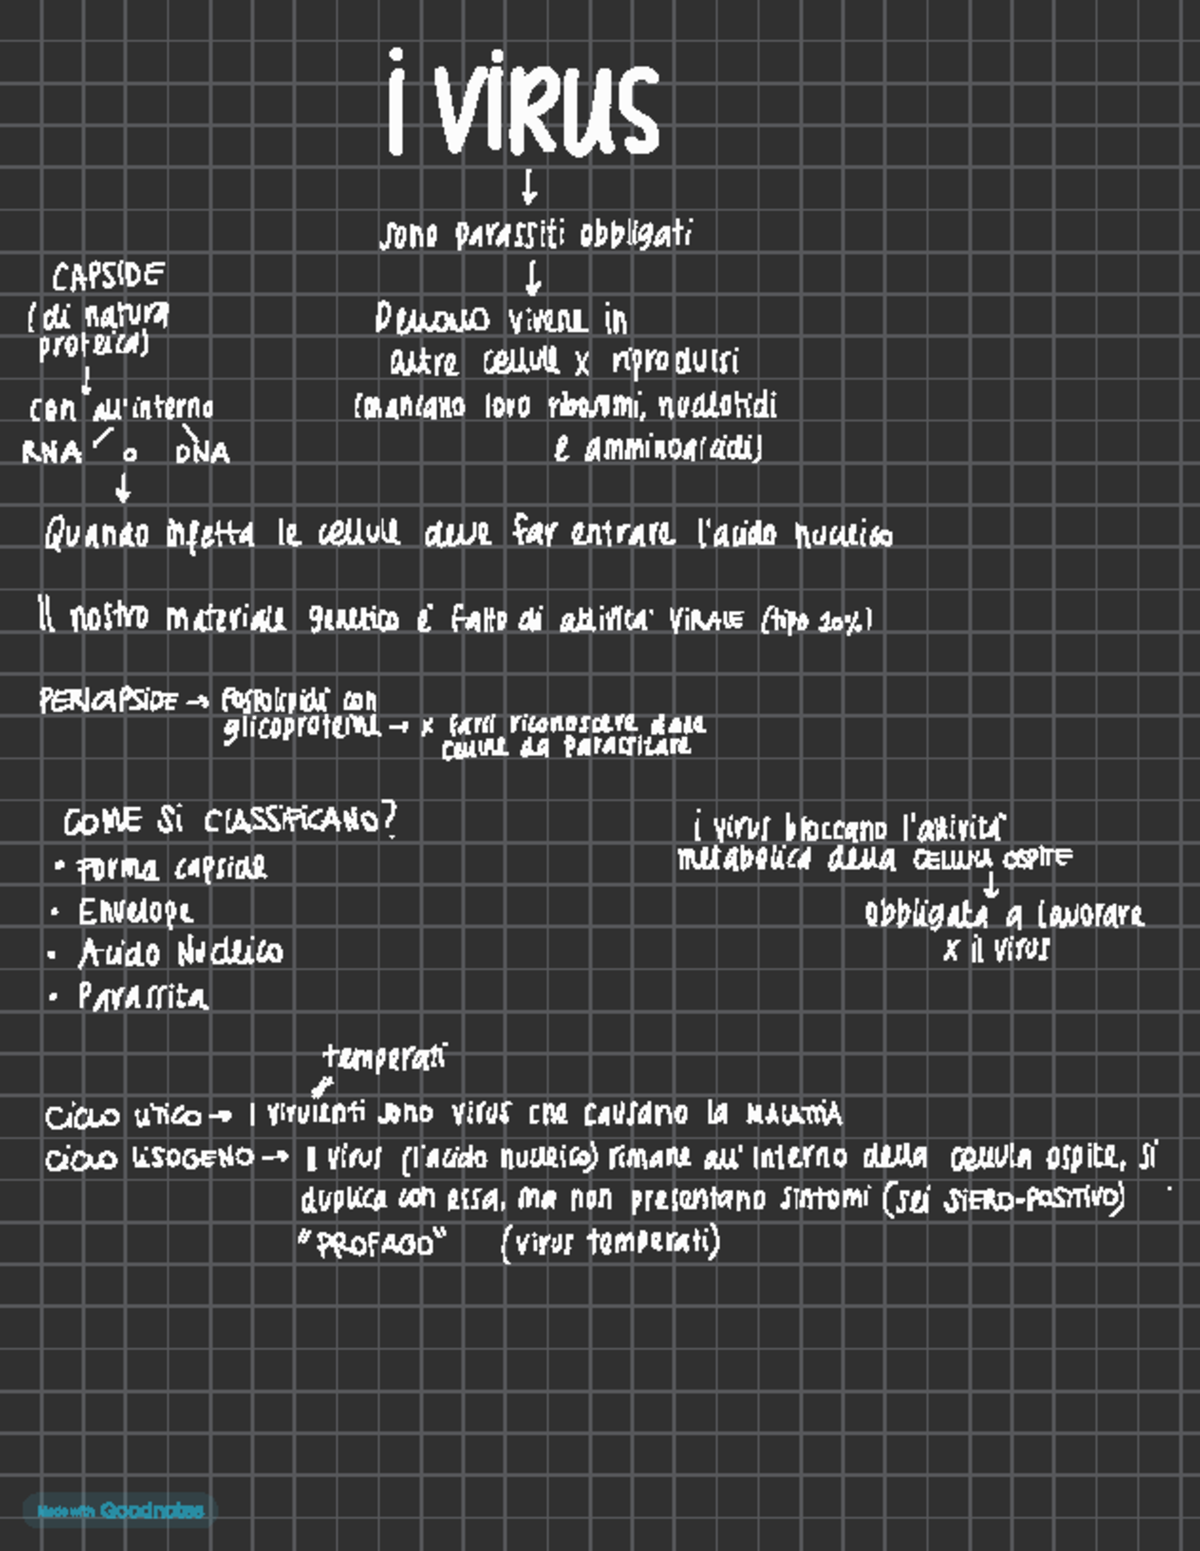 i VIRUS
↓
sono parassiti obbligati
↓
Devono vivere in
altre cellule x riprodursi
(mancano loro ribosomi, nucleotidi
e amminoacidi)
CAPSIDE
(di natura
proteica)
↓
con all'interno
RNA o DNA
↓
Quando infetta le cellule deve far entrare l'acido nucleico
Il nostro materiale genetico è fatto di attività VIRALE (tipo 20%)
PERICAPSIDE → Fosfolipidi con
glicoproteine → x farsi riconoscere dalle
cellule da parassitare
COME SI CLASSIFICANO?
• Forma capside
• Envelope
• Acido Nucleico
• Parassita
i virus bloccano l'attività
metabolica della CELLULA OSPITE
↓
obbligata a lavorare
x il virus
temperati
CICLO LITICO → I virulenti sono virus che causano la MALATTIA
CICLO LISOGENO → Il virus (l'acido nucleico) rimane all'interno della cellula ospite, si
duplica con essa, ma non presentano sintomi (sei SIERO-POSITIVO)
"PROFAGO" (virus temperati)
Made with Goodnotes